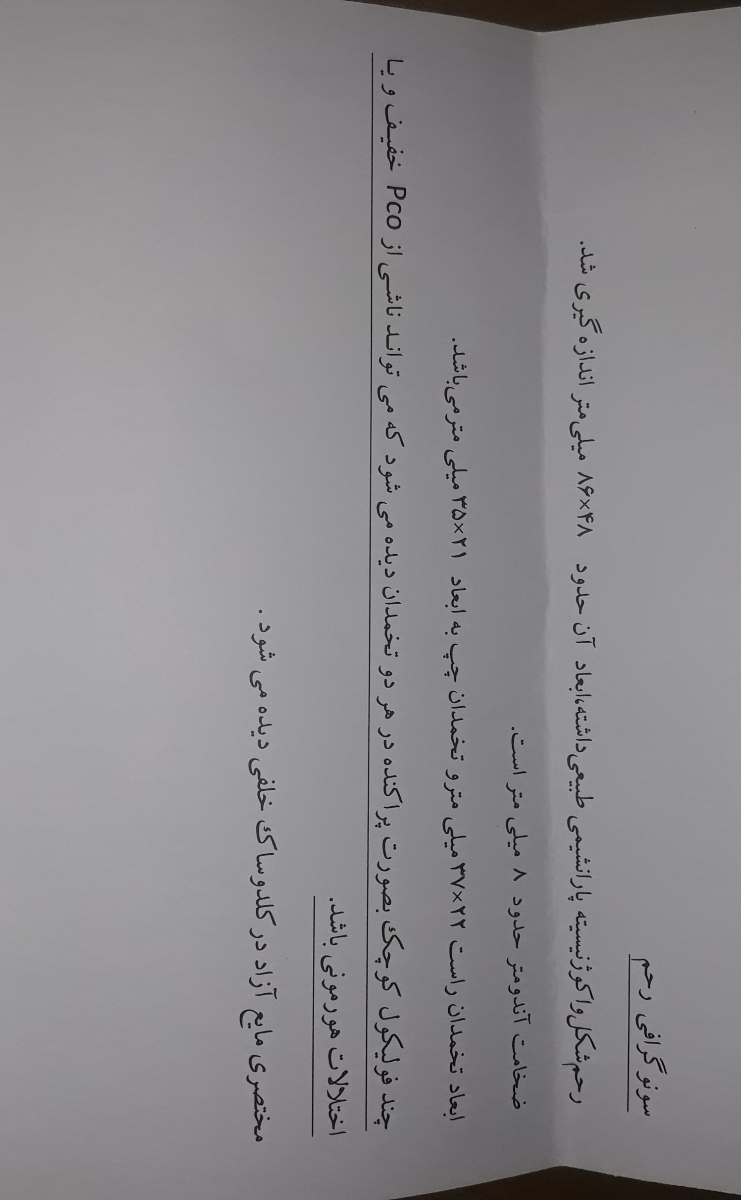 سونوگرافی رحم
رحم شکل و اکوژنیسیته پارانشیمی طبیعی داشته، ابعاد آن حدود ۸۶×۴۸ میلی متر اندازه گیری شد.
ضخامت آندومتر حدود ۸ میلی متر است.
ابعاد تخمدان راست ۳۷×۲۲ میلی متر و تخمدان چپ به ابعاد ۳۵×۲۱ میلی متر می‌باشد.
چند فولیکول کوچک بصورت پراکنده در هر دو تخمدان دیده می شود که می تواند ناشی از Pco خفیف و یا
اختلالات هورمونی باشد.
مختصری مایع آزاد در کلدوساک خلفی دیده می شود .